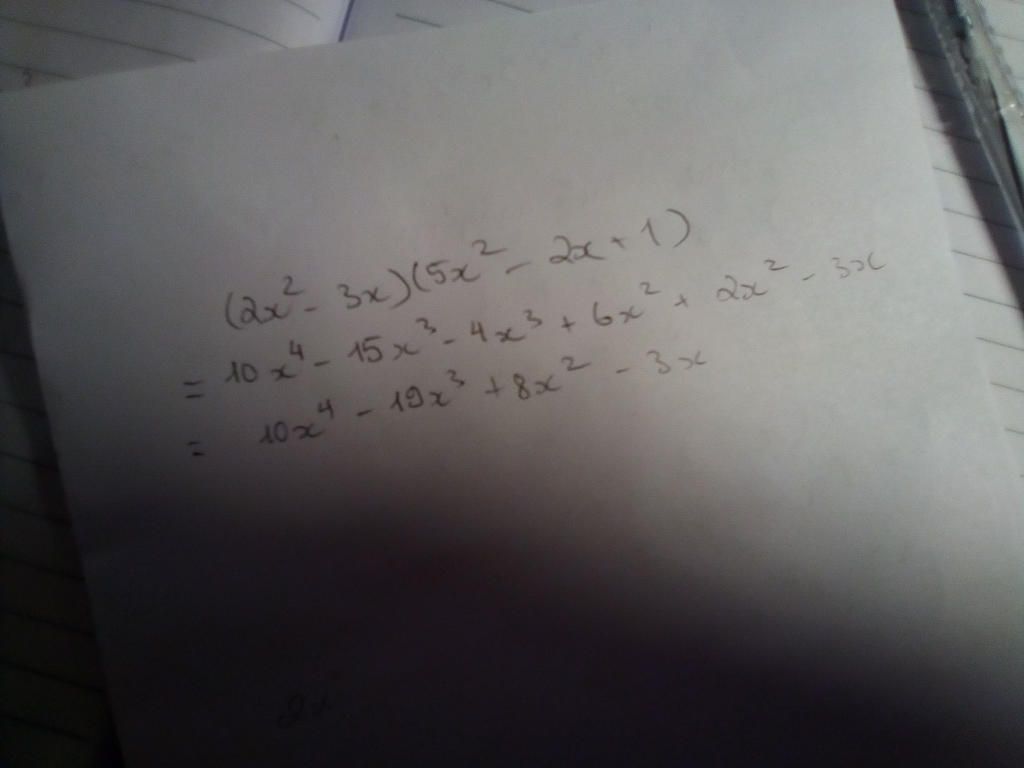 (2x² - 3x)(5x² - 2x + 1)
= 10x⁴ - 15x³ - 4x³ + 6x² + 2x² - 3x
= 10x⁴ - 19x³ + 8x² - 3x
2x